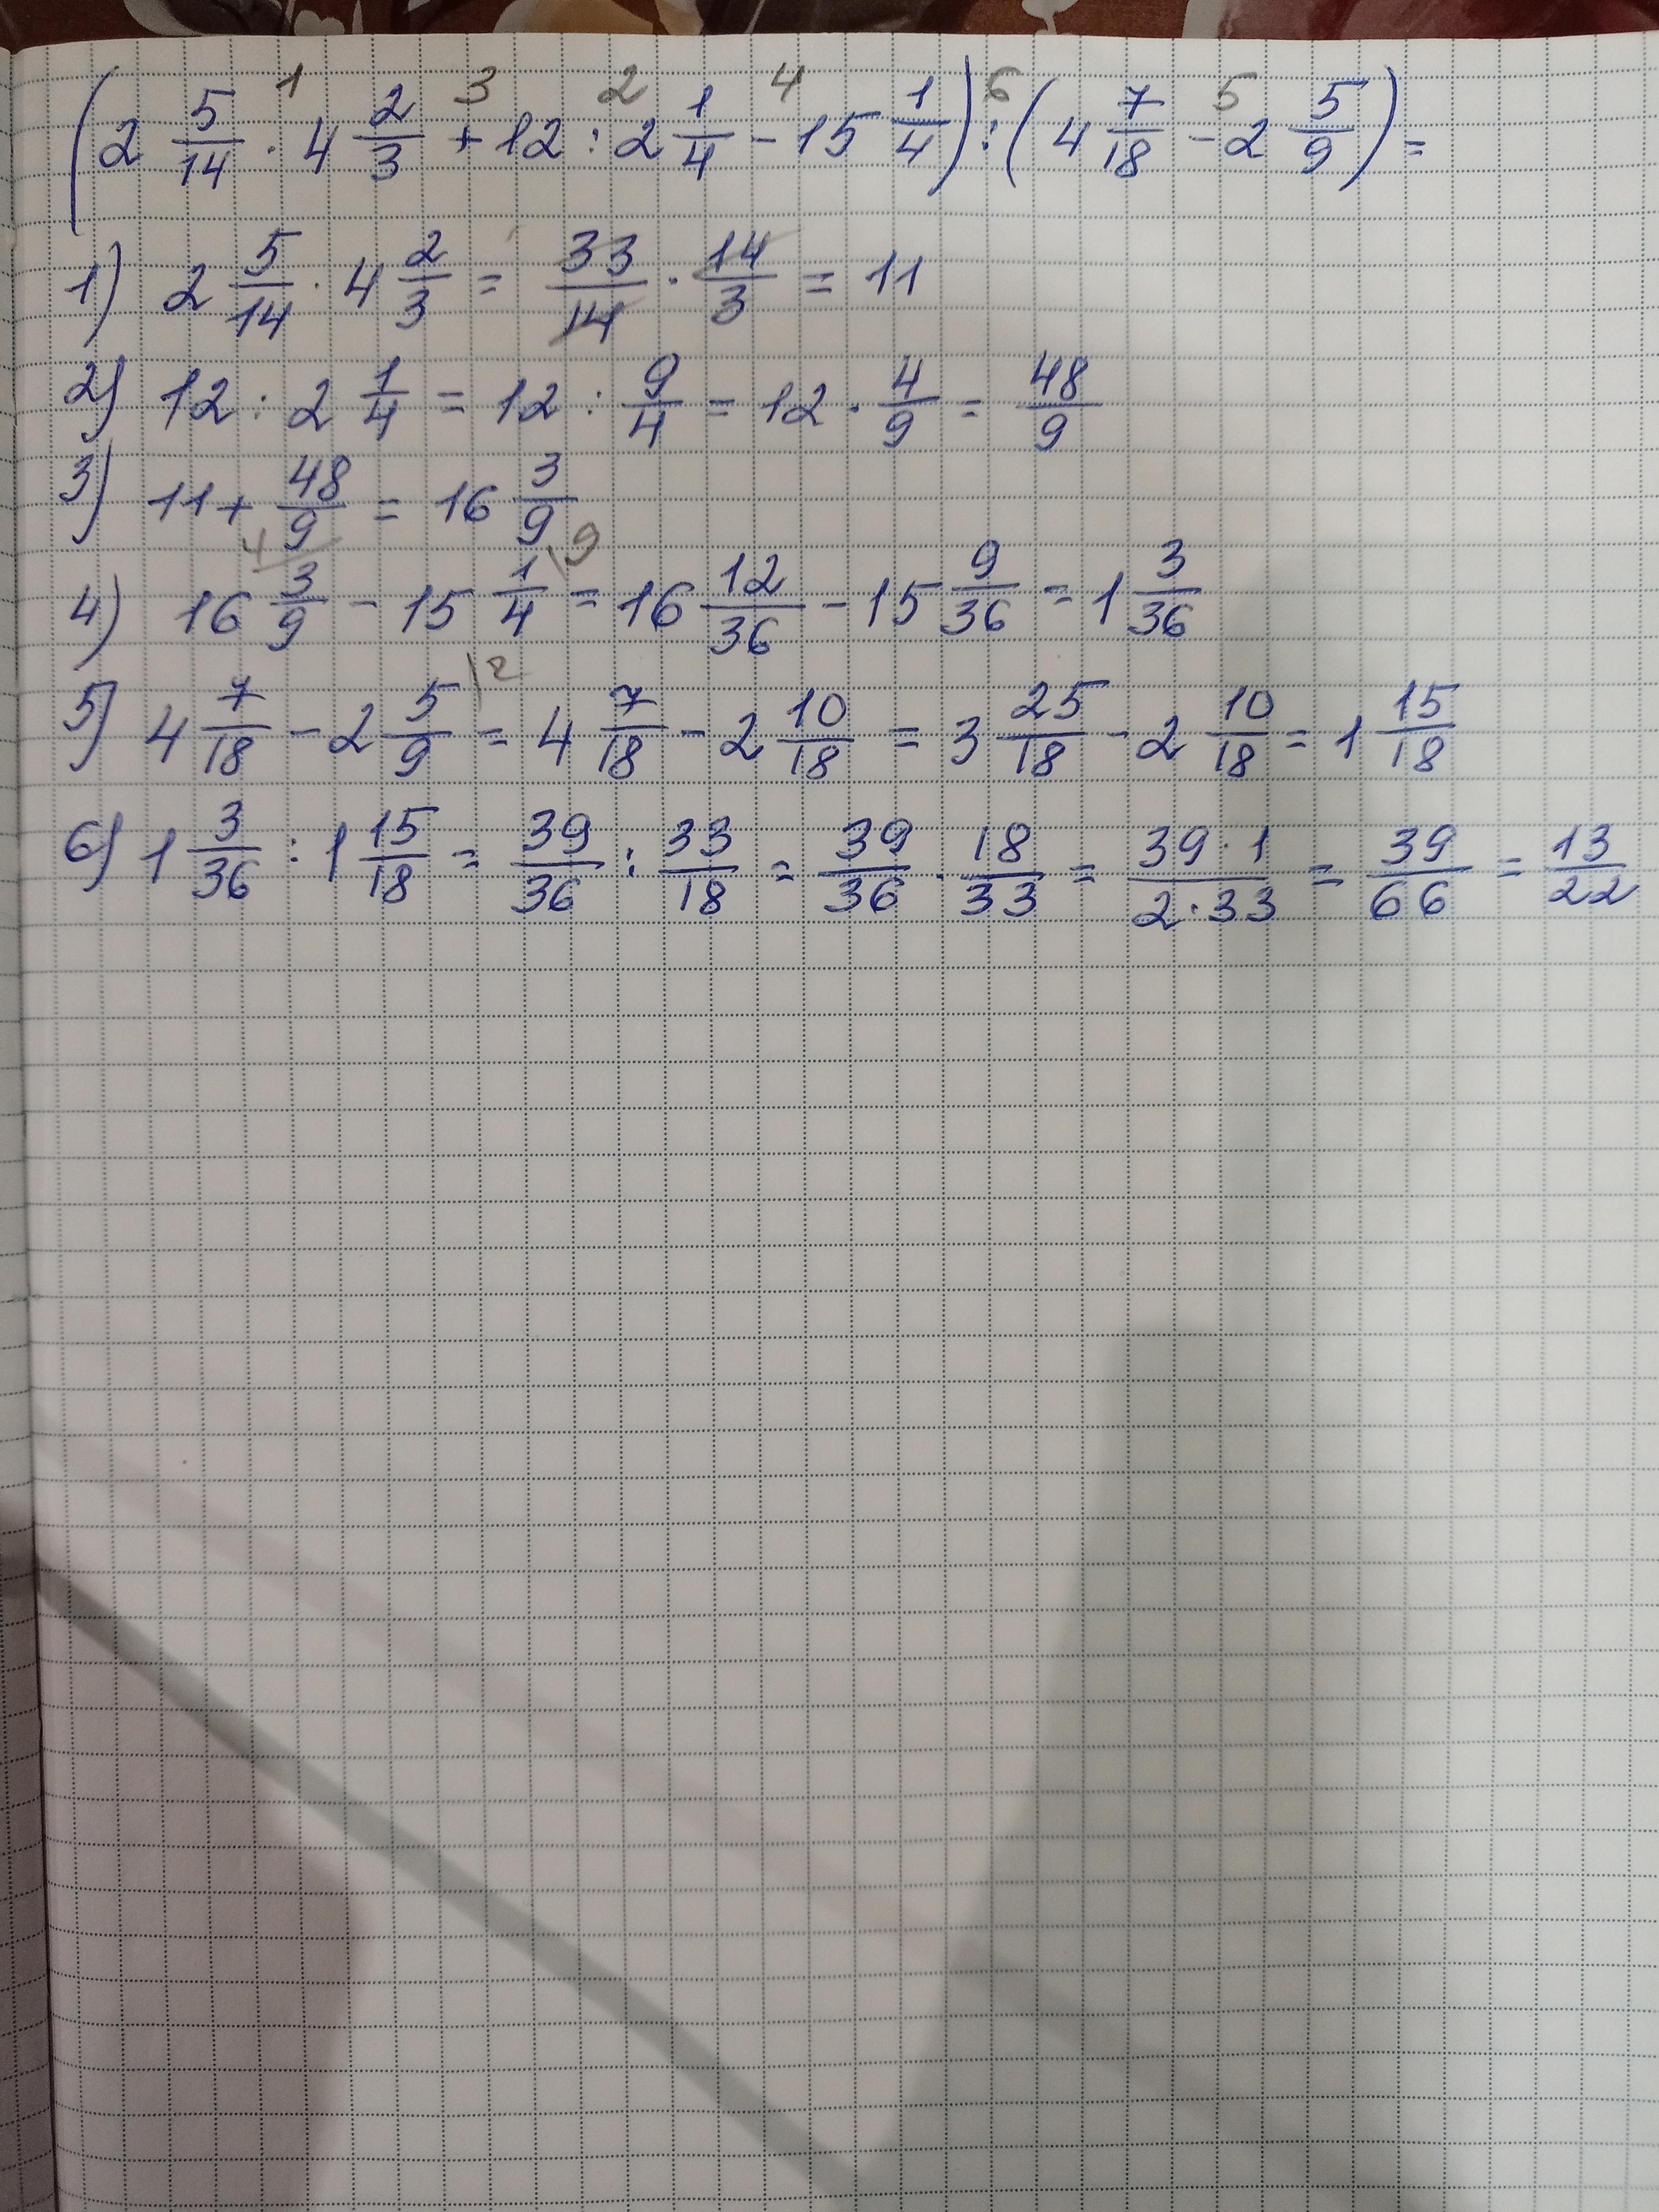 1 3 2 4 6 5
(2 5/14 · 4 2/3 + 12 : 2 1/4 - 15 1/4) : (4 7/18 - 2 5/9) =
1) 2 5/14 · 4 2/3 = 33/14 · 14/3 = 11
2) 12 : 2 1/4 = 12 : 9/4 = 12 · 4/9 = 48/9
3) 11 + 48/9 = 16 3/9
4) 16 3/9 4/ - 15 1/4 \9 = 16 12/36 - 15 9/36 = 1 3/36
5) 4 7/18 - 2 5/9 \2 = 4 7/18 - 2 10/18 = 3 25/18 - 2 10/18 = 1 15/18
6) 1 3/36 : 1 15/18 = 39/36 : 33/18 = 39/36 · 18/33 = 39·1/2·33 = 39/66 = 13/22